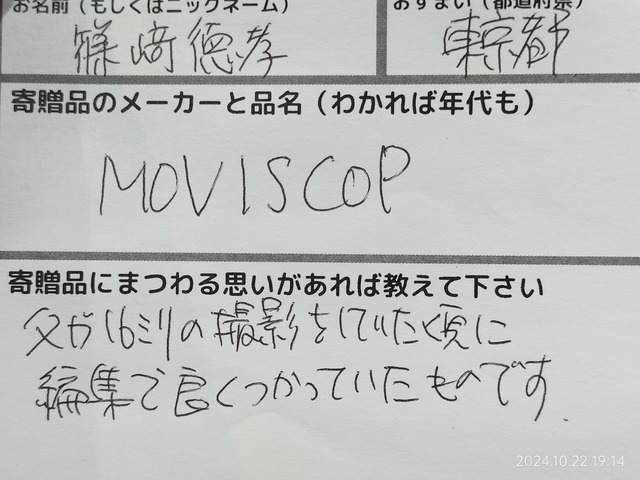 お名前（もしくはニックネーム）
おすまい（都道府県）
篠﨑徳孝
東京都
寄贈品のメーカーと品名（わかれば年代も）
MOVISCOP
寄贈品にまつわる思いがあれば教えて下さい
父が16ミリの撮影をしていた頃に
編集で良くつかっていたものです.
2024.10.22 19:14